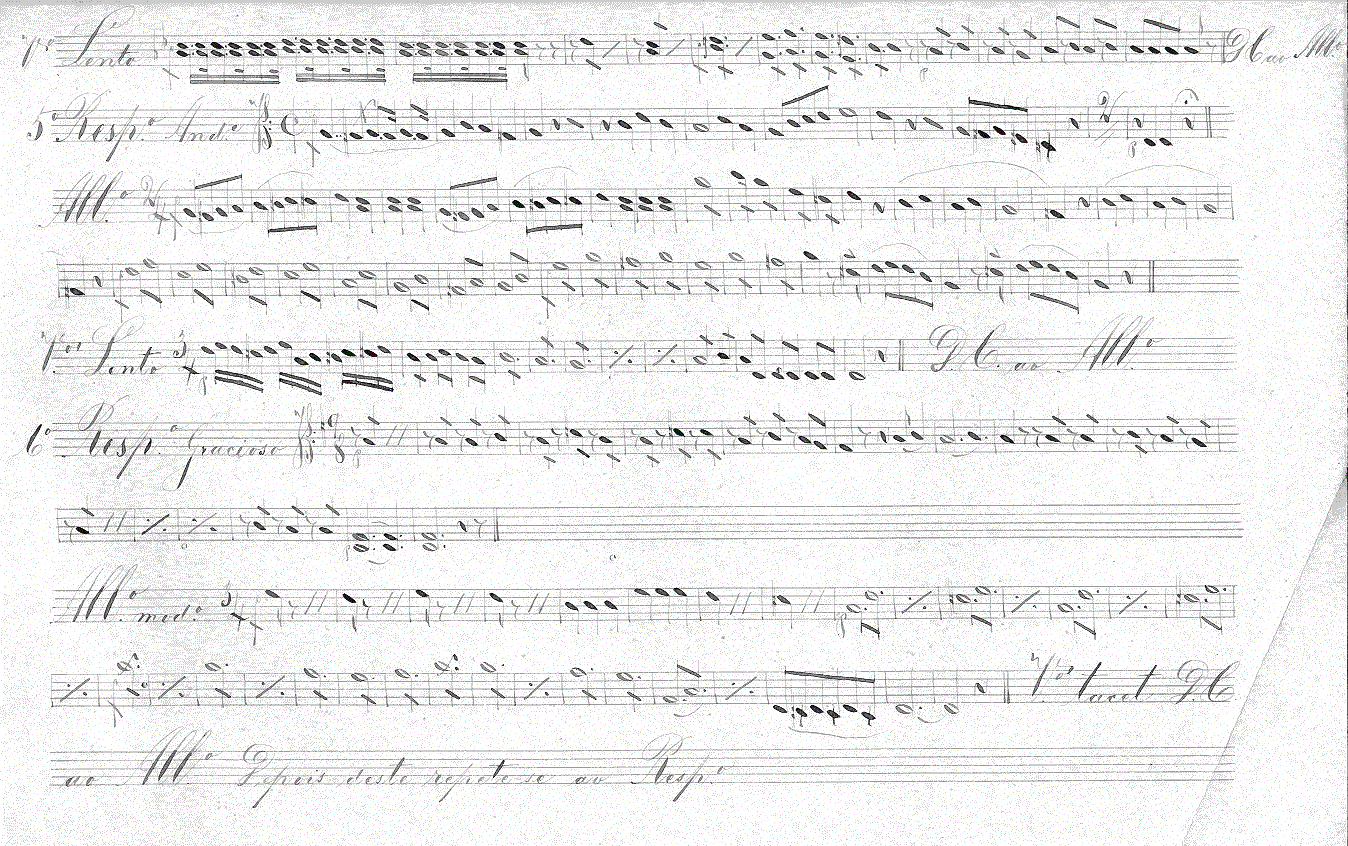 Vº Lento D.C. ao Allº
5º Respº Andº
Allº
Vos Lento 3 D.C. ao Allº
6º Respº Gracioso 6 8
Allº modº 3
Vos tacet D.C.
ao Allº Depois deste repete-se ao Respº